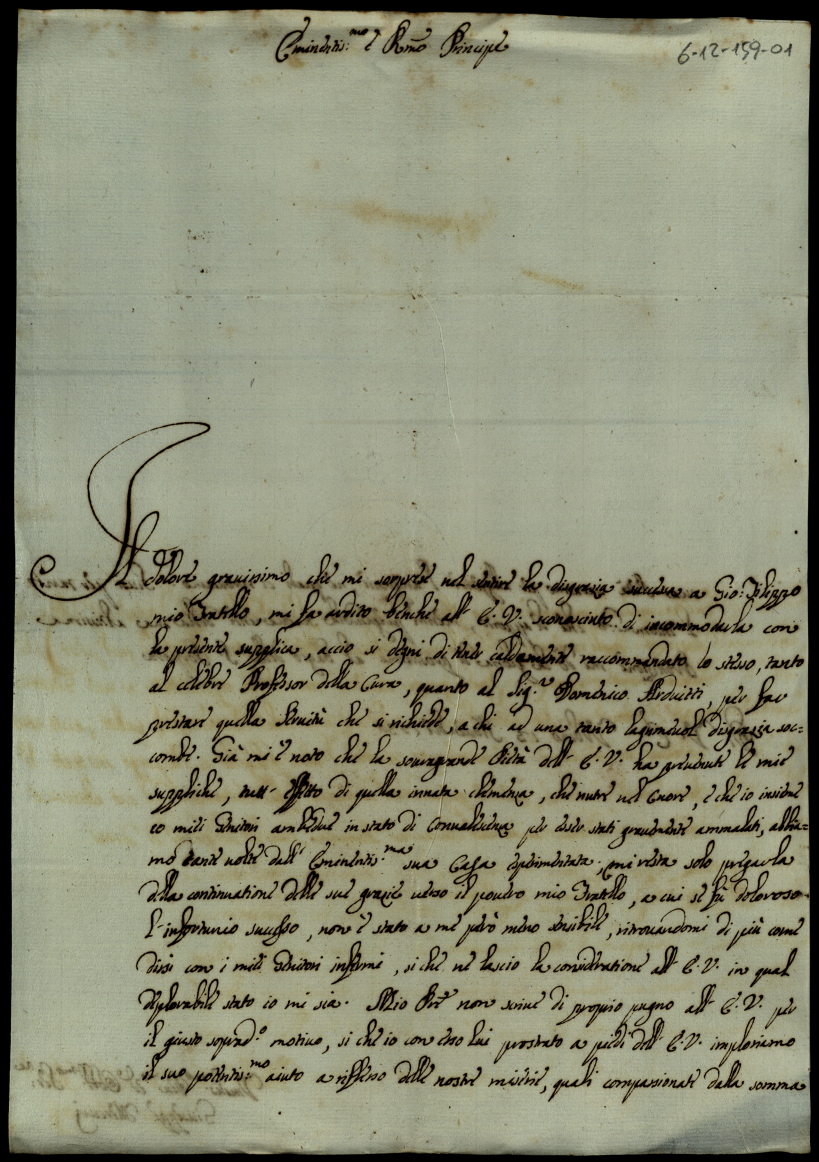 Eminentis:mo e Rmo Principe
6-12-159-01
Il dolore grauissimo che mi sorprese nel sentire la disgrazia successa a Gio: Filippo
mio Fratello, mi fa ardito benche all' E. V. sconosciuto di incommodarla con
la presente supplica, accio si degni di tener caldamente raccommandato lo stesso, tanto
al celebre Professor della Cura, quanto al Sig.r Domenico Arduitti, per far
prestare quella seruitù che si richiede, a chi ad una tanto lagrimeuol disgrazia soc=
combe. Già mi è noto che la souragrande Pietà dell' E. V. ha preuenute le mie
suppliche, tutt' effetto di quella innata clemenza, che nutre nel Cuore, e che io insieme
co miei Genitori ambedue in stato di Conualescenza per esser stati grauemente ammalati, abbia=
mo tante uolte dall' Eminentis:ma sua Casa esperimentata; mi resta solo pregarla
della continuatione delle sue grazie uerso il pouero mio Fratello, a cui se fù doloroso
l'infortunio successo, non è stato a me però meno sensibile, ritrouandomi di più come
dissi con i miei Genitori infermi, si che ne lascio la consideratione all' E. V. in qual
deplorabile stato io mi sia. Mio Pre non scriue di proprio pugno all' E. V. per
il giusto soprad.o motiuo, si che io con esso lui prostrato a piedi dell' E. V. imploriamo
il suo potentis:mo aiuto a riflesso delle nostre miserie, quali compassionate dalla somma